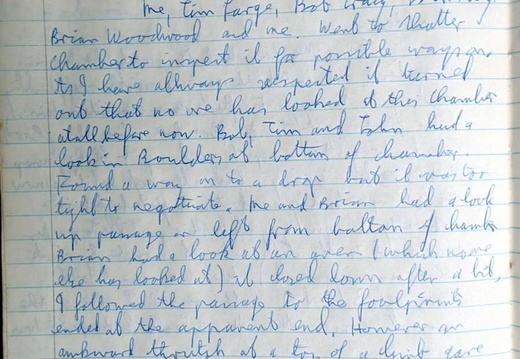 Me, Tim Large, Bob
Brian Woodwood and me. Went to Shatter
Chamber to inspect it for possible ways on.
As I have allways suspected it turned
out that no one has looked at this chamber
atall before now. Bob, Tim and John had a
look in Boulders at bottom of chamber.
Found a way on to a drop but it was too
tight to negotiate. Me and Brian had a look
up passage on left from bottom of chamber
Brian had a look at an aven (which no one
else has looked at) it closed down after a bit,
I followed the passage to the footprints
ended at the apparent end. However an
awkward thrutch at a top of a climb gave